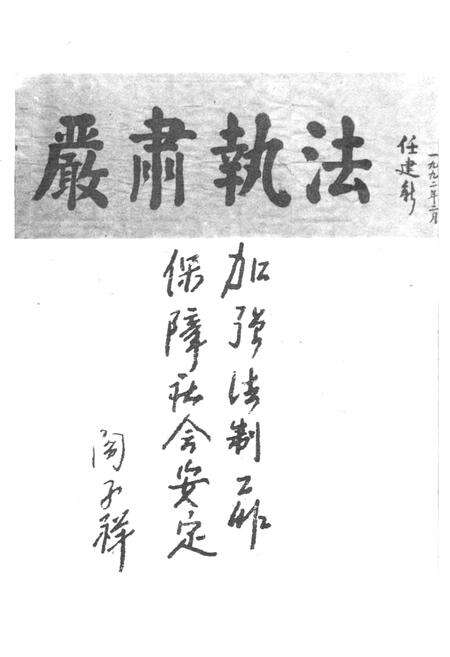 嚴肅執法
任建新
一九九二年二月
加强法制工作
保障社会安定
阎子祥